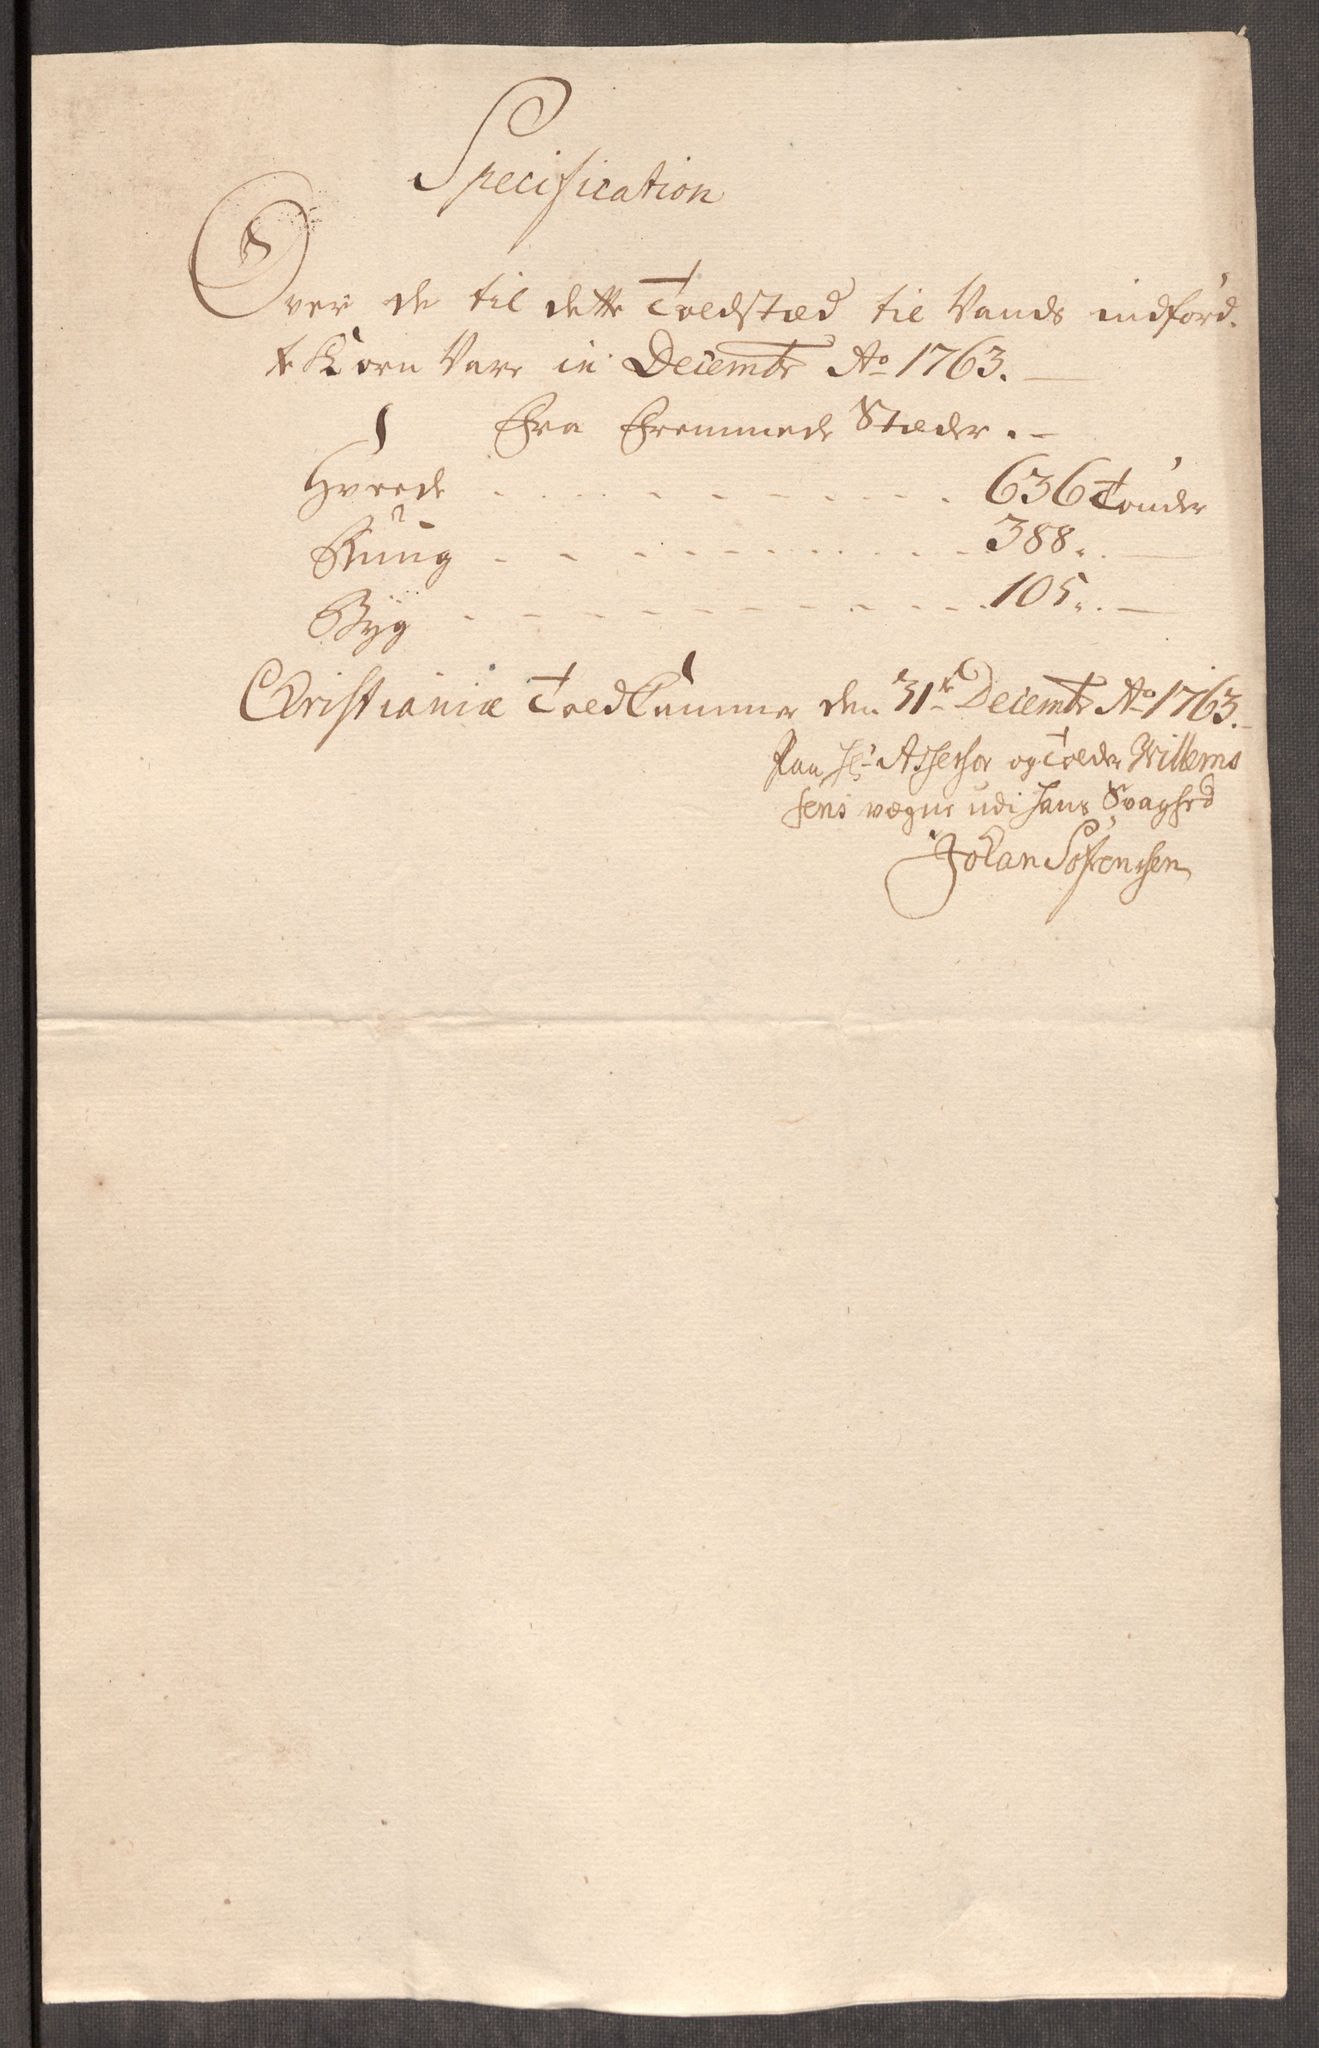 Specification
Over de til dette Toldstæd til Vands indförd
te Korn Vare in Decembr Ao 1763.
Fra Fremmede Stæder.
Hvede 636 Tönder
Rúug 388
Byg 105
Christianiæ Toldkammer den 31te Decembr Ao 1763.
Paa Hr Assessor og Tolder Willems
sens vægne udi hans Svaghed
Johan Sörensen